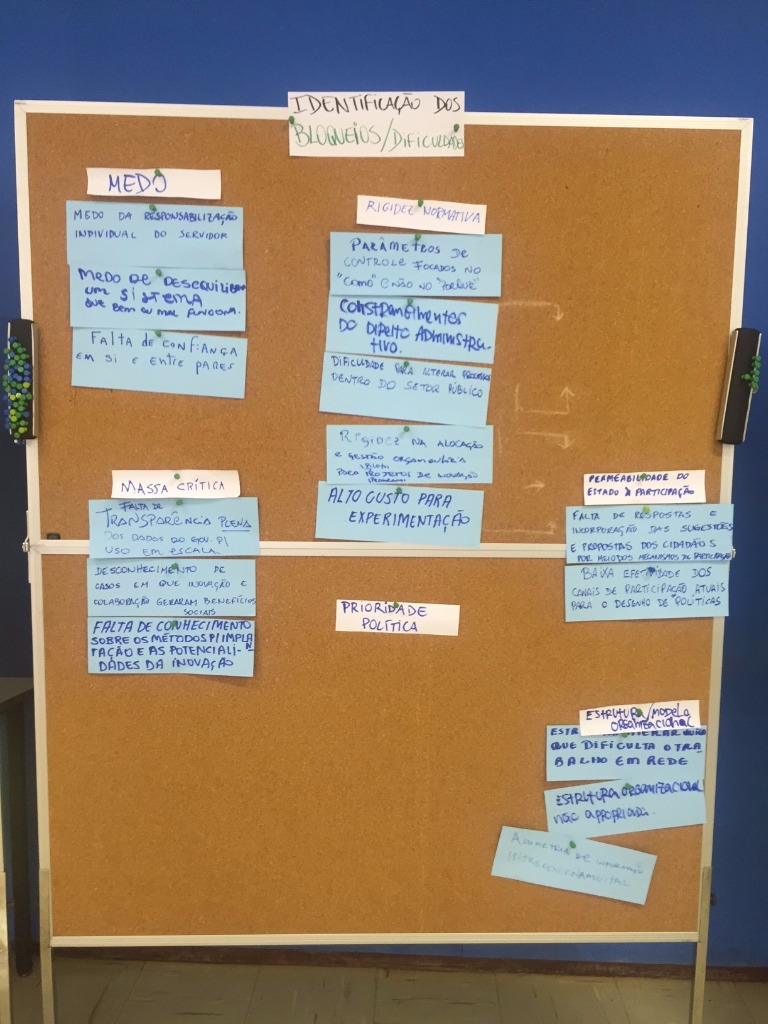 IDENTIFICAÇÃO DOS
BLOQUEIOS/DIFICULDADES
MEDO
MEDO DA RESPONSABILIZAÇÃO
INDIVIDUAL DO SERVIDOR
MEDO DE DESEQUILIBRAR
UM SISTEMA
QUE BEM OU MAL FUNCIONA.
FALTA DE CONFIANÇA
EM SI E ENTRE PARES
RIGIDEZ NORMATIVA
PARÂMETROS DE
CONTROLE FOCADOS NO
"COMO" E NÃO NO "PORQUE"
CONSTRANGIMENTOS
DO DIREITO ADMINISTRA-
TIVO.
DIFICULDADE PARA ALTERAR PROCESSOS
DENTRO DO SETOR PÚBLICO
RIGIDEZ NA ALOCAÇÃO
E GESTÃO ORÇAMENTÁRIA
PARA PROJETOS DE INOVAÇÃO
ALTO CUSTO PARA
EXPERIMENTAÇÃO
MASSA CRÍTICA
FALTA DE
TRANSPARÊNCIA PLENA
DOS DADOS DO GOV. P/
USO EM ESCALA
DESCONHECIMENTO DE
CASOS EM QUE INOVAÇÃO E
COLABORAÇÃO GERARAM BENEFÍCIOS
SOCIAIS
FALTA DE CONHECIMENTO
SOBRE OS MÉTODOS P/ IMPLAN
TAÇÃO E AS POTENCIALI-
DADES DA INOVAÇÃO
PERMEABILIDADE DO
ESTADO À PARTICIPAÇÃO
FALTA DE RESPOSTAS E
INCORPORAÇÃO DAS SUGESTÕES
E PROPOSTAS DOS CIDADÃOS
POR MEIO DOS MECANISMOS DE PARTICIPAÇÃO
BAIXA EFETIVIDADE DOS
CANAIS DE PARTICIPAÇÃO ATUAIS
PARA O DESENHO DE POLÍTICAS
PRIORIDADE
POLÍTICA
ESTRUTURA/MODELO
ORGANIZACIONAL
QUE DIFICULTA O TRA
BALHO EM REDE
ESTRUTURA ORGANIZACIONAL
NÃO APROPRIADA.
ASSIMETRIA DE INFORMAÇÃO
INTRAGOVERNAMENTAL